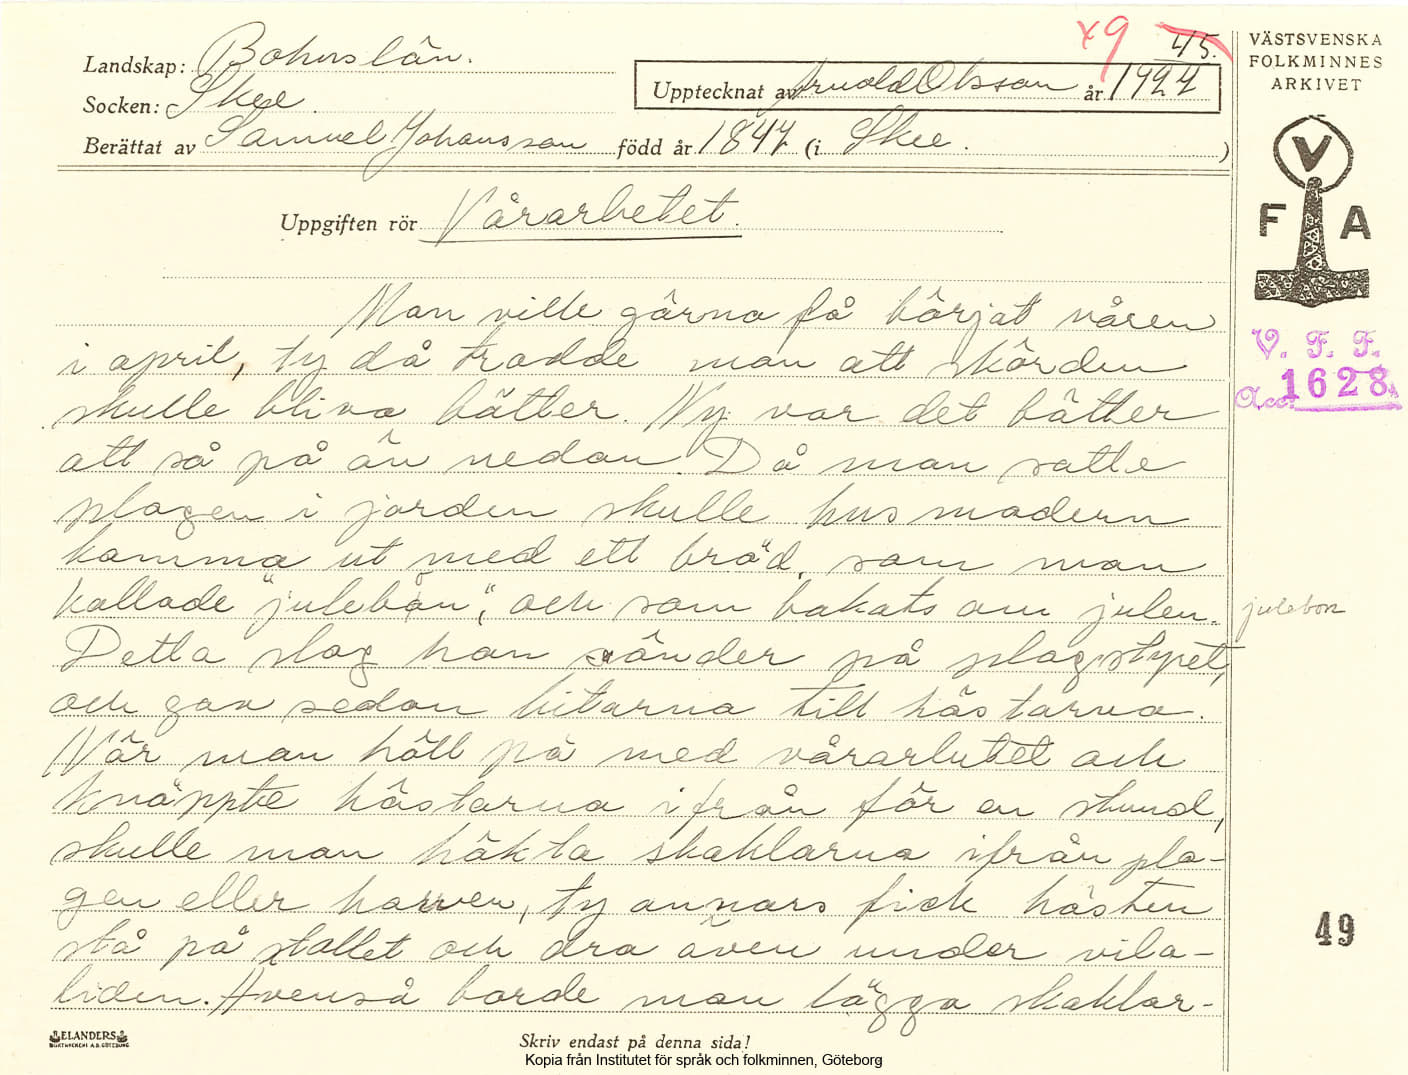 49
45.
Landskap: Bohuslän.
Socken: Skee.
Upptecknat av Arnold Olsson år 1924
Berättat av Samuel Johansson född år 1847 (i Skee.)
VÄSTSVENSKA
FOLKMINNES
ARKIVET
V
F A
V. F. F.
Acc. 1628
Uppgiften rör Vårarbetet.
Man ville gärna få börjat våren
i april, ty då trodde man att skörden
skulle bliva bättler. Ny var det bättler
att så på än nedan. Då man satte
plogen i jorden skulle husmodern
komma ut med ett bröd, som man
kallade "julebon", och som bakats om julen.
julebon
Detta slog han sönder på plogstyret,
och gav sedan bitarna till hästarna.
När man höll på med vårarbetet och
knäppte hästarna ifrån för en stund,
skulle man häkta skaklarna ifrån plo-
gen eller harven, ty annars fick hästen
stå på stallet och dra även under vilo-
tiden. Avenså borde man lägga skaklar-
49
ELANDERS
BOKTRYCKERI A.B. GÖTEBORG
Skriv endast på denna sida!
Kopia från Institutet för språk och folkminnen, Göteborg